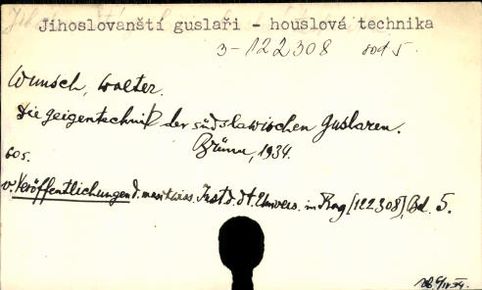 Jihoslovanští guslaři - houslová technika
3-122308 sočt 5.
Wünsch, Walter.
Die Geigentechnik der südslawischen Guslaren.
Brünn, 1934.
60 s.
v. Veröffentlichungen d. musikwiss. Inst. d. dt. Univers. in Prag [122308], Bd. 5.